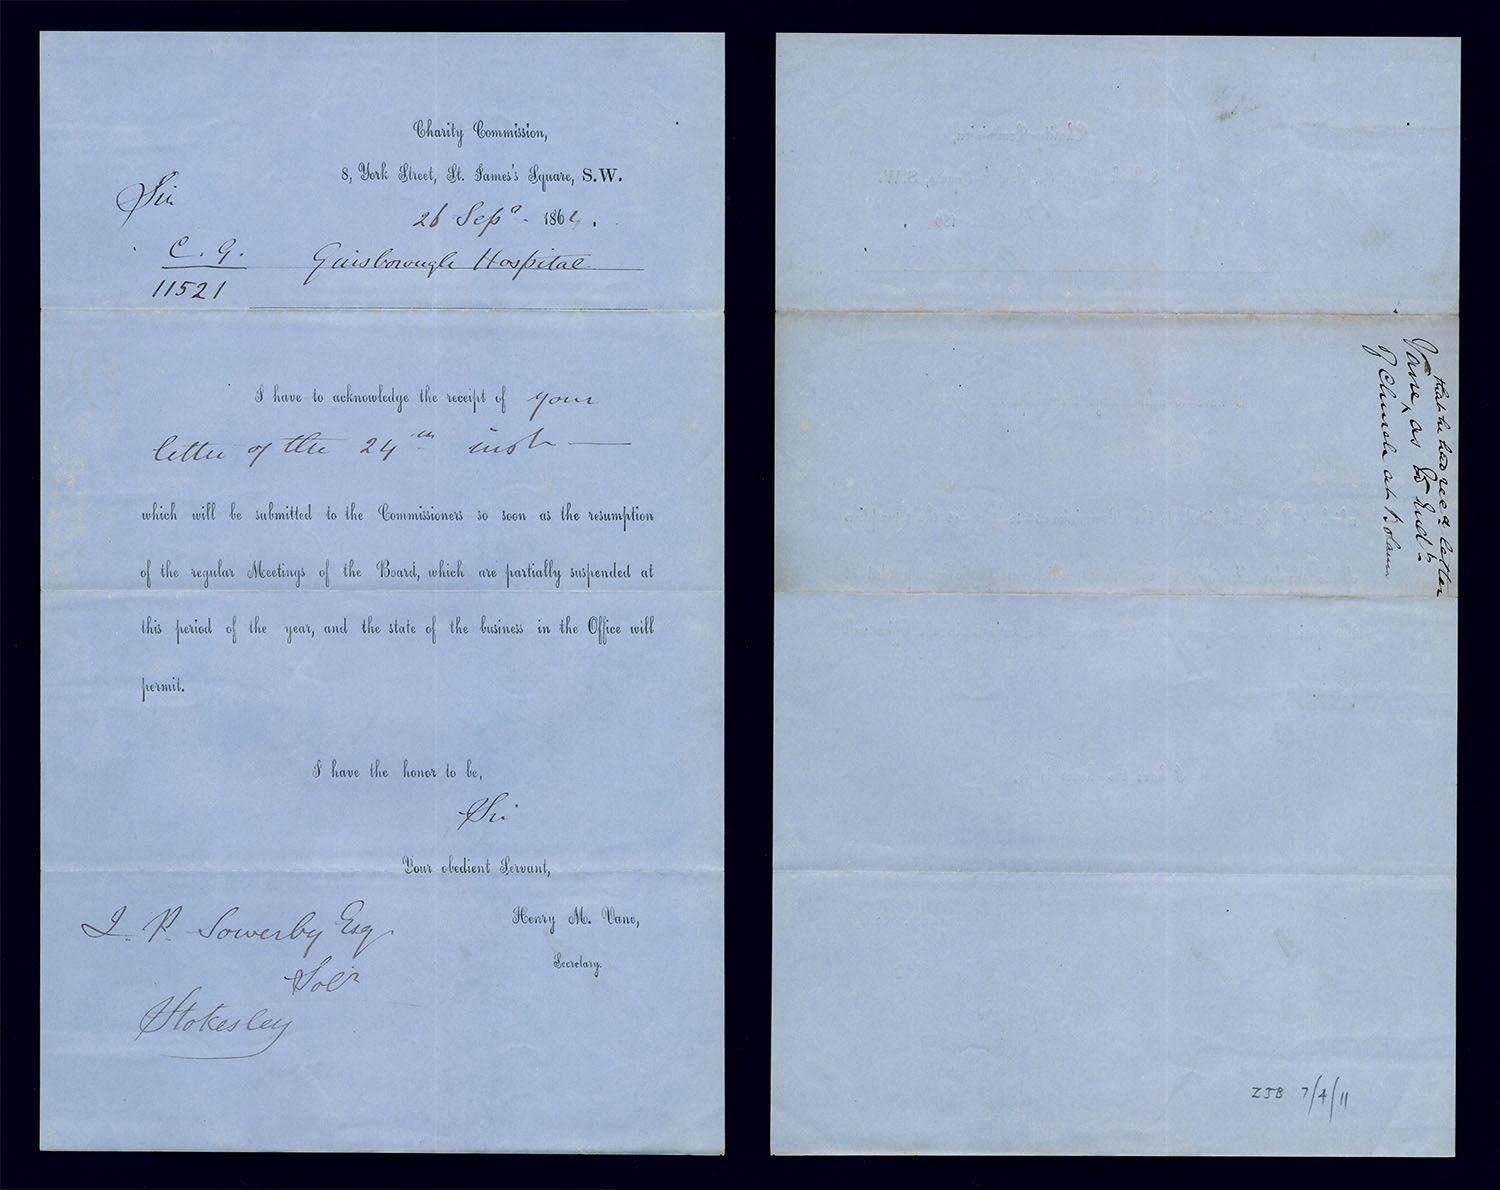 Charity Commission,
8, York Street, St. James's Square, S.W.
Sir
26 Sepr. 1864.
C. G.
Guisborough Hospital
11521
I have to acknowledge the receipt of your
letter of the 24th inst
which will be submitted to the Commissioners so soon as the resumption
of the regular Meetings of the Board, which are partially suspended at
this period of the year, and the state of the business in the Office will
permit.
I have the honor to be,
Sir
Your obedient Servant,
Henry M. Vane,
Secretary.
J. P. Sowerby Esq
Solr
Stokesley
that he had recd letter
Vane, as to Endt
of Church at
ZJB 7/4/11